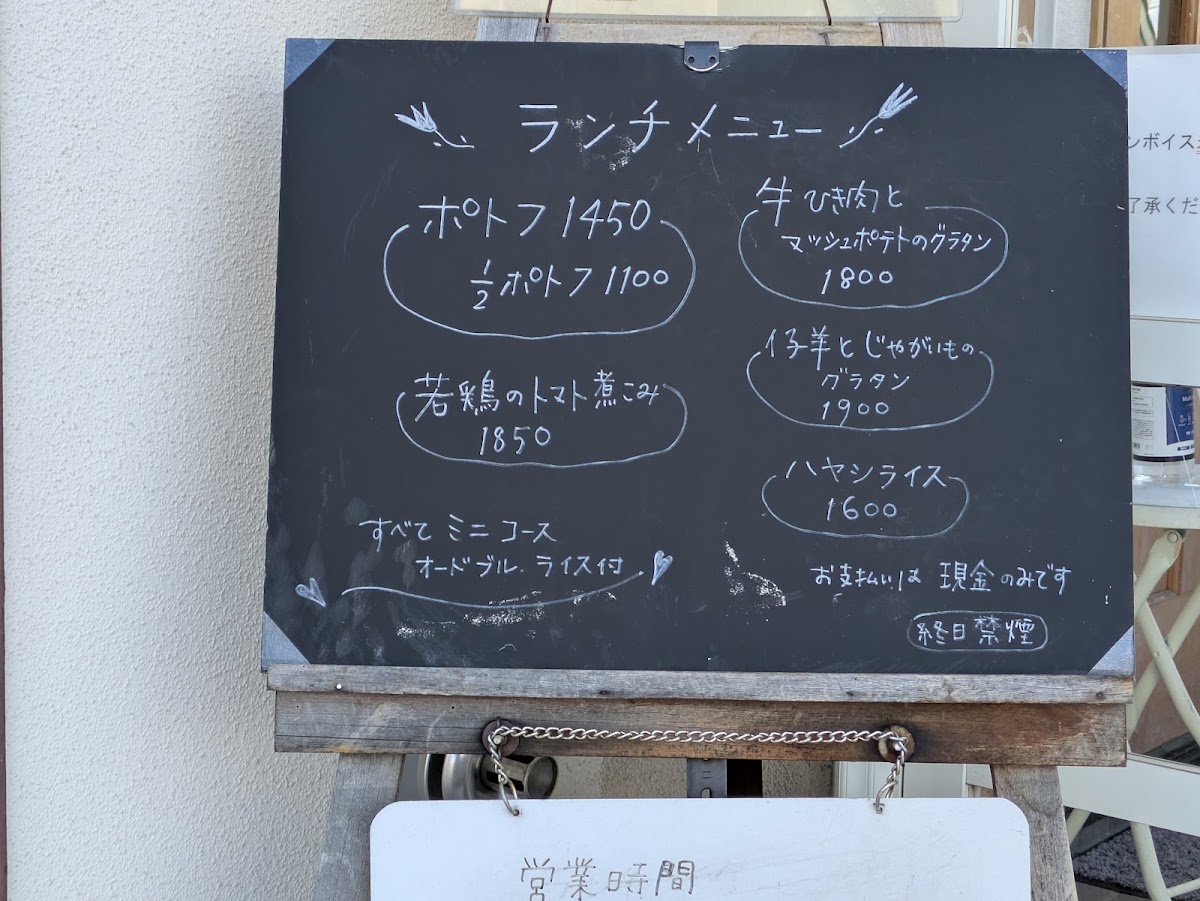 ランチメニュー
ポトフ 1450
1/2 ポトフ 1100
若鶏のトマト煮こみ
1850
すべて ミニ コース
オードブル.ライス付
牛ひき肉と
マッシュポテトのグラタン
1800
仔羊とじゃがいもの
グラタン
1900
ハヤシライス
1600
お支払いは 現金のみです
終日禁煙
ンボイス
了承くだ
営業時間